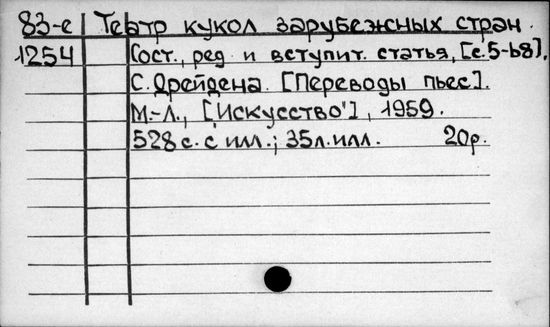 83-е Театр кукол зарубежных стран.
1254 Сост., ред и вступит. статья, [с.5-68].
С. Дрейдена. [Переводы пьес].
М.-Л., ["Искусство"], 1959.
528 с. с илл.; 35л. илл. 20р.